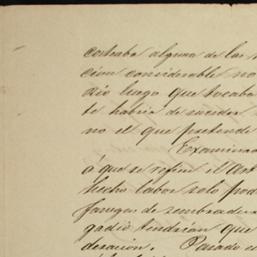 costeaba alguna de las
cion considerable no
dio luego que tocaba
te habria de suceder
no el que pretende
Examinad
á que se refiere el Art
hecho labor solo prod
fanegas de sembradura
gadio tendrian que
deracion. Pasado e